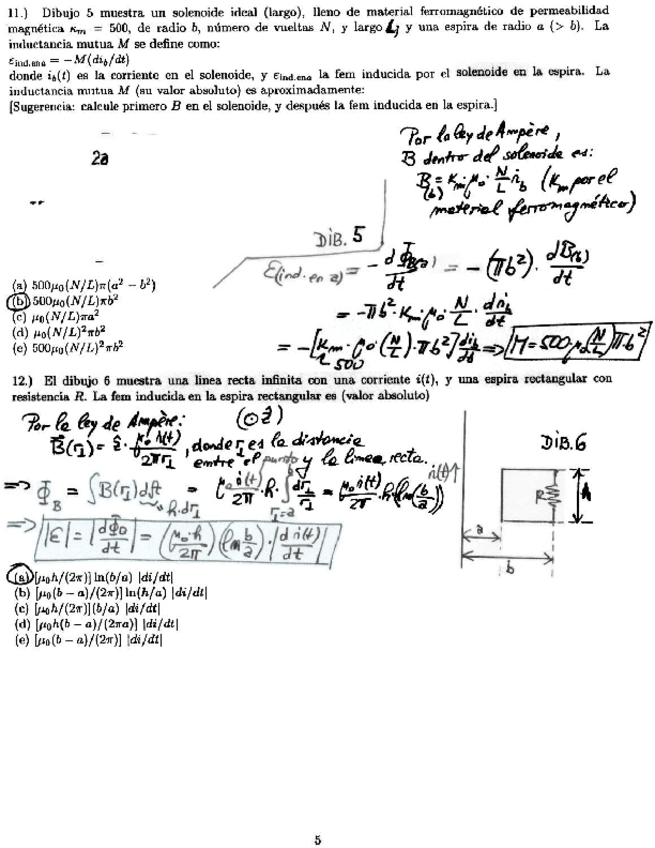 11.) Dibujo 5 muestra un solenoide ideal (largo), lleno de material ferromagnético de permeabilidad
magnética κₘ = 500, de radio b, número de vueltas N, y largo L, y una espira de radio a (> b). La
inductancia mutua M se define como:
ε_ind.en a = −M(di_b/dt)
donde i_b(t) es la corriente en el solenoide, y ε_ind.en a la fem inducida por el solenoide en la espira. La
inductancia mutua M (su valor absoluto) es aproximadamente:
[Sugerencia: calcule primero B en el solenoide, y después la fem inducida en la espira.]
Por la ley de Ampère,
B dentro del solenoide es:
2a
B(b) = Kₘ·μ₀·N/L·i_b (Kₘ por el
material ferromagnético)
DIB. 5
ε(ind. en a) = −dΦ_B(a)/dt = −(πb²)·dB(b)/dt
= −πb²·Kₘ·μ₀·N/L·di_b/dt
= −[Kₘ·μ₀·(N/L)·πb²]di_b/dt => M = 500μ₀(N/L)πb²
500
(a) 500μ₀(N/L)π(a² − b²)
(b) 500μ₀(N/L)πb²
(c) μ₀(N/L)πa²
(d) μ₀(N/L)²πb²
(e) 500μ₀(N/L)²πb²
12.) El dibujo 6 muestra una linea recta infinita con una corriente i(t), y una espira rectangular con
resistencia R. La fem inducida en la espira rectangular es (valor absoluto)
Por la ley de Ampère: (⊙ẑ)
B(r⊥) = ẑ·μ₀i(t)/2πr⊥, donde r⊥ es la distancia
entre el punto y la linea recta.
=> Φ_B = ∫B(r⊥)dA = μ₀i(t)/2π·h·∫_{r⊥=a}^{b} dr⊥/r⊥ = μ₀i(t)/2π·h(ln(b/a))
h·dr⊥
=> |ε| = |dΦ_B/dt| = (μ₀·h/2π)(ln b/a)·|di(t)/dt|
DIB.6
i(t)↑
R
h
a
b
(a) [μ₀h/(2π)] ln(b/a) |di/dt|
(b) [μ₀(b − a)/(2π)] ln(h/a) |di/dt|
(c) [μ₀h/(2π)](b/a) |di/dt|
(d) [μ₀h(b − a)/(2πa)] |di/dt|
(e) [μ₀(b − a)/(2π)] |di/dt|
5